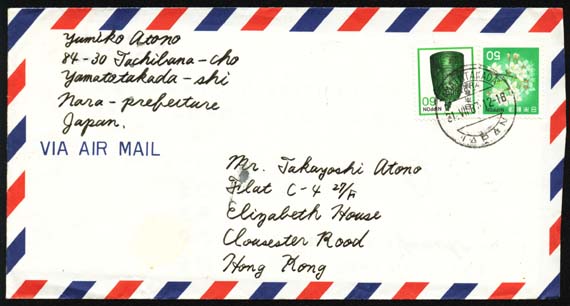 Yumiko Atono
84-30 Tachibana-cho
Yamatotakada-shi
Nara-prefeiture
Japan.
VIA AIR MAIL
60
NIPPON
50
NIPPON
日本郵便
31.VII.
12-18
NARA
Mr. Takayoshi Atono
Flat C-4 27/F
Elizabeth House
Clousester Rood
Hong Kong